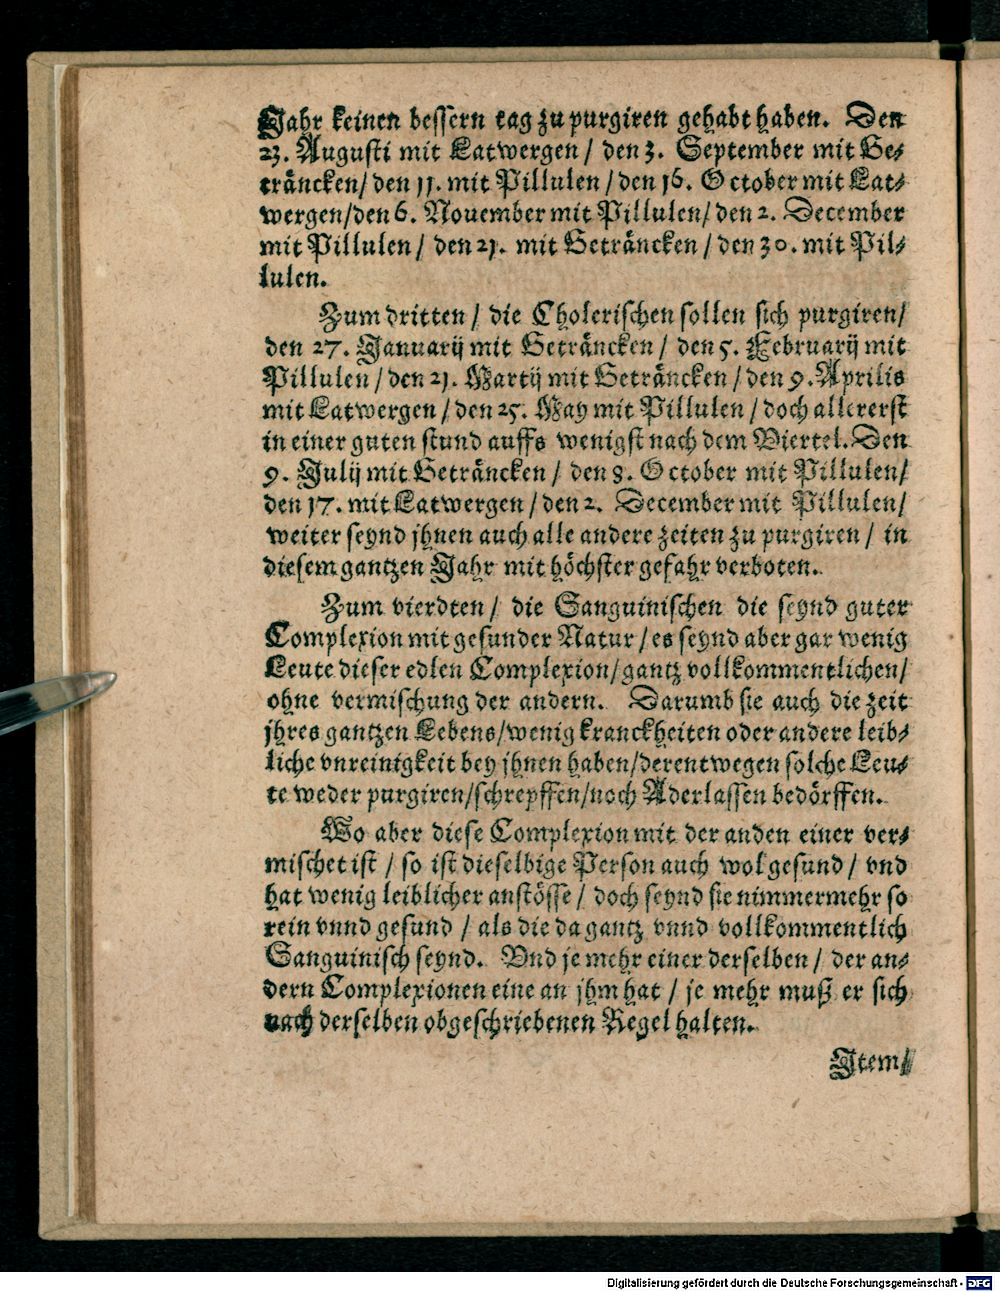 Jahr keinen bessern tag zu purgiren gehabt haben. Den
23. Augusti mit Latwergen / den 3. September mit Ge-
träncken / den 11. mit Pillulen / den 16. October mit Lat-
wergen / den 6. Nouember mit Pillulen / den 2. December
mit Pillulen / den 21. mit Geträncken / den 30. mit Pil-
lulen.
Zum dritten / die Cholerischen sollen sich purgiren /
den 27. Januarij mit Geträncken / den 5. Februarij mit
Pillulen / den 21. Martij mit Geträncken / den 9. Aprilis
mit Latwergen / den 25. May mit Pillulen / doch allererst
in einer guten stund auffs wenigst nach dem Viertel. Den
9. Julij mit Geträncken / den 8. October mit Pillulen /
den 17. mit Latwergen / den 2. December mit Pillulen /
weiter seynd jhnen auch alle andere zeiten zu purgiren / in
diesem gantzen Jahr mit höchster gefahr verboten.
Zum vierdten / die Sanguinischen die seynd guter
Complexion mit gesunder Natur / es seynd aber gar wenig
Leute dieser edlen Complexion / gantz vollkommentlichen /
ohne vermischung der andern. Darumb sie auch die zeit
jhres gantzen Lebens / wenig kranckheiten oder andere leib-
liche vnreinigkeit bey jhnen haben / derentwegen solche Leu-
te weder purgiren / schrepffen / noch Aderlassen bedörffen.
Wo aber diese Complexion mit der anden einer ver-
mischet ist / so ist dieselbige Person auch wol gesund / vnd
hat wenig leiblicher anstösse / doch seynd sie nimmermehr so
rein vnnd gesund / als die da gantz vnnd vollkommentlich
Sanguinisch seynd. Vnd je mehr einer derselben / der an-
dern Complexionen eine an jhm hat / je mehr muß er sich
nach derselben obgeschriebenen Regel halten.
Item /
Digitalisierung gefördert durch die Deutsche Forschungsgemeinschaft - DFG